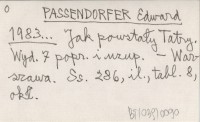 0
PASSENDORFER Edward
1983... Jak powstały Tatry.
Wyd. 7 popr. i uzup. - War-
szawa. Ss. 286, il., tabl. 8,
okł.